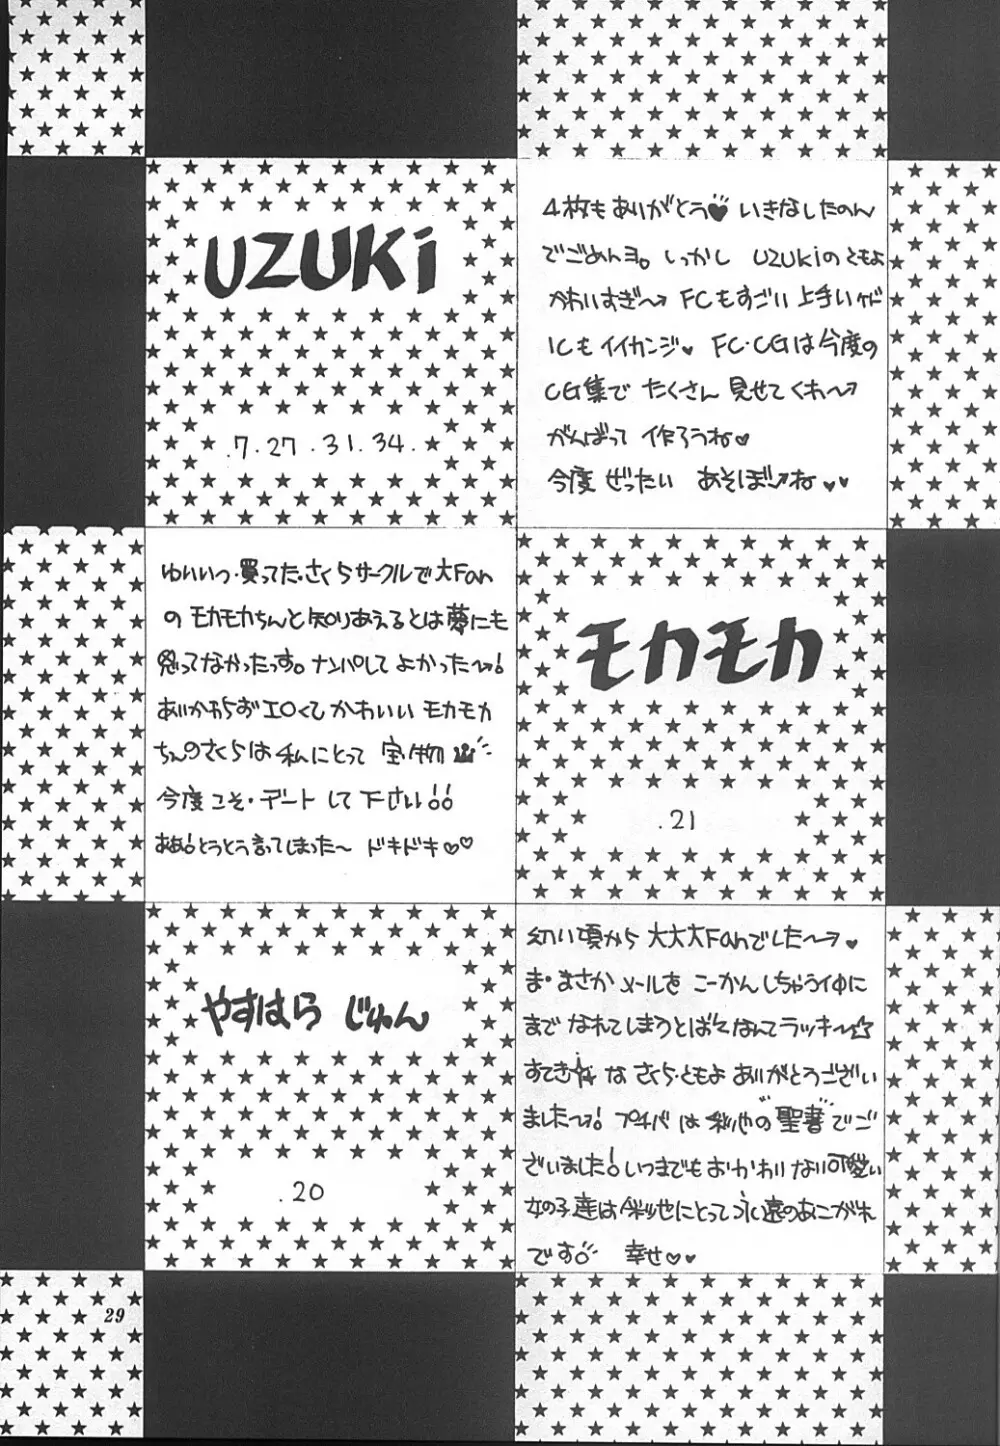 UZUKi
.7.27.31.34.
4枚もありがとう♥ いきなしたのん
でごめんヨ。しっかし UZUKiのともよ
かわいすぎ〜→ FCもすごい上手いケド
ICもイイカンジ♥ FC・CGは今度の
CG集で たくさん見せてくれ〜→
がんばって 作ろうね♥
今度 ぜったい あそぼ→ね♥♥
ゆいいつ・買ってた・さくらサークルで大Fan
の モカモカちんと知りあえるとは夢にも
思ってなかったっす。ナンパして よかった〜→!
あいかわらず エロくて かわいい モカモカ
ちんのさくらは 私にとって 宝物
今度こそ・デート して 下さい!!
ああ!とうとう言ってしまった〜 ドキドキ♡♡
モカモカ
.21
やすはら じゅん
.20
幼い頃から 大大大Fanでした〜→♥
ま・まさか メールを こーかん しちゃうイ中に
まで なれてしまうとは" なんてラッキ〜☆
すてき☆ な さくら・ともよ ありがとうござい
ました〜→! プチバ は 彩也の "聖書" でご
ざいました! いつまでも おかわりない可愛い
女の子達は 彩也にとって 永遠のあこがれ
です! 幸せ♥♥
29